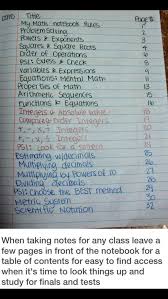 Title Page #
My Math notebook Rules 1
Problemsolving 2
Powers & Exponents 3
Squares & Square Roots 4
Order of Operations 6
PSI: Guess & Check 8
Variables & Expressions 9
Equations: Mental Math 11
Properties of Math 13
Arithmetic Sequences
Functions & Equations 16
Integers & Absolute Value
Integers
Integers
PSI: Look for a
Estimating w/decimals
Multiplying decimals
Multiplying by Powers of 10
Dividing decimals
PSI: Choose the BEST method
Metric System
Scientific Notation
When taking notes for any class leave a
few pages in front of the notebook for a
table of contents for easy to find access
when it's time to look things up and
study for finals and tests